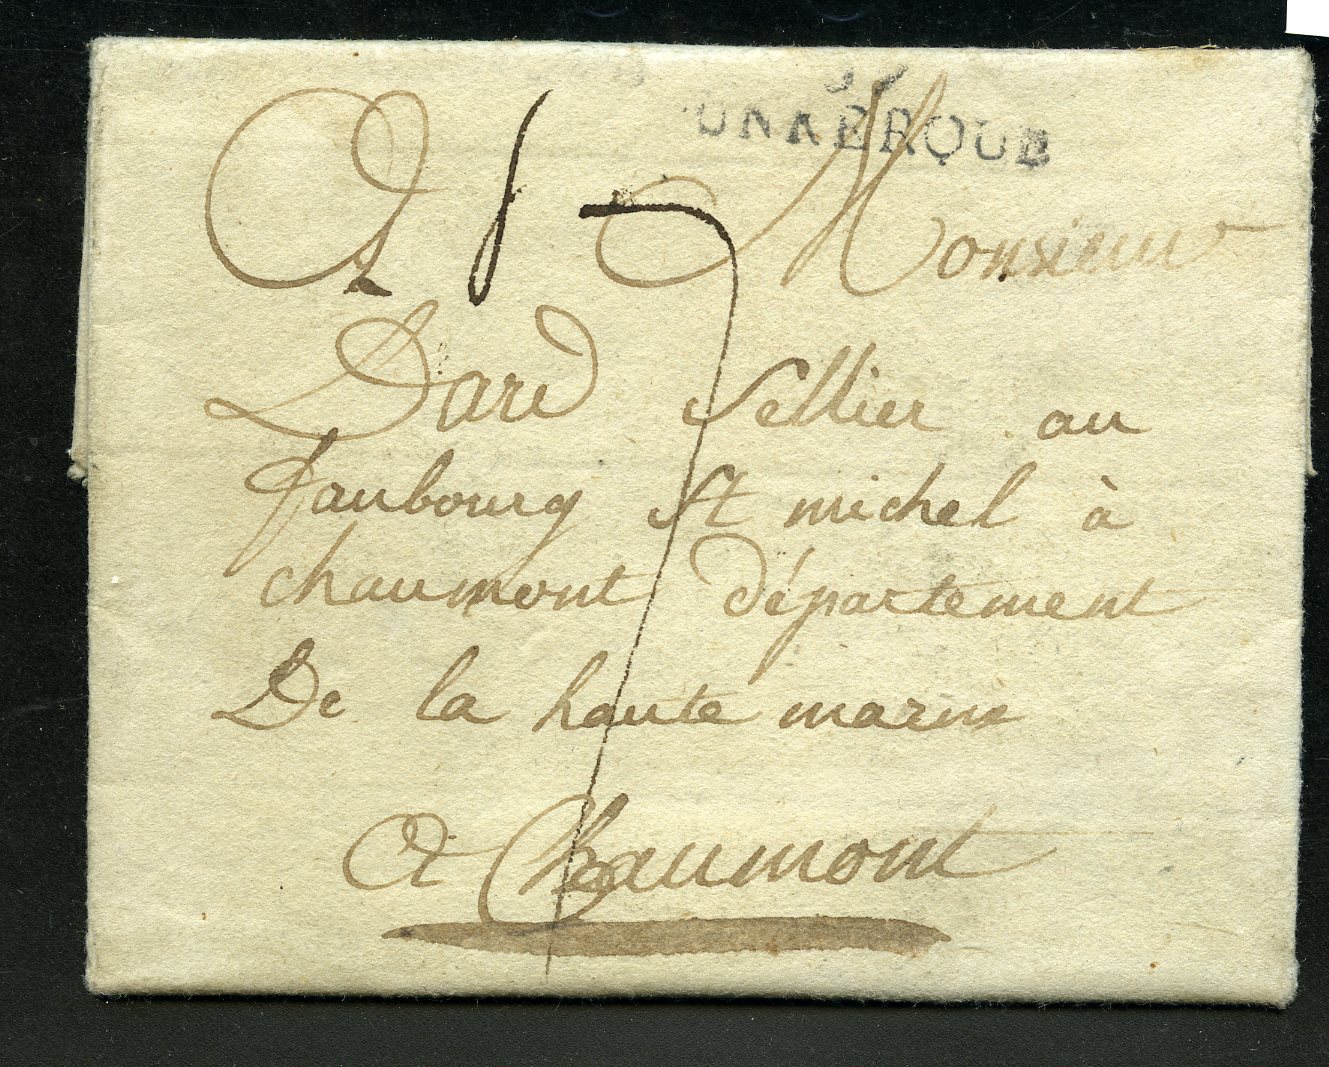 UNKERQUE
A Monsieur
Dard Sellier au
faubourg St michel à
chaumont département
De la haute marne
A Chaumont